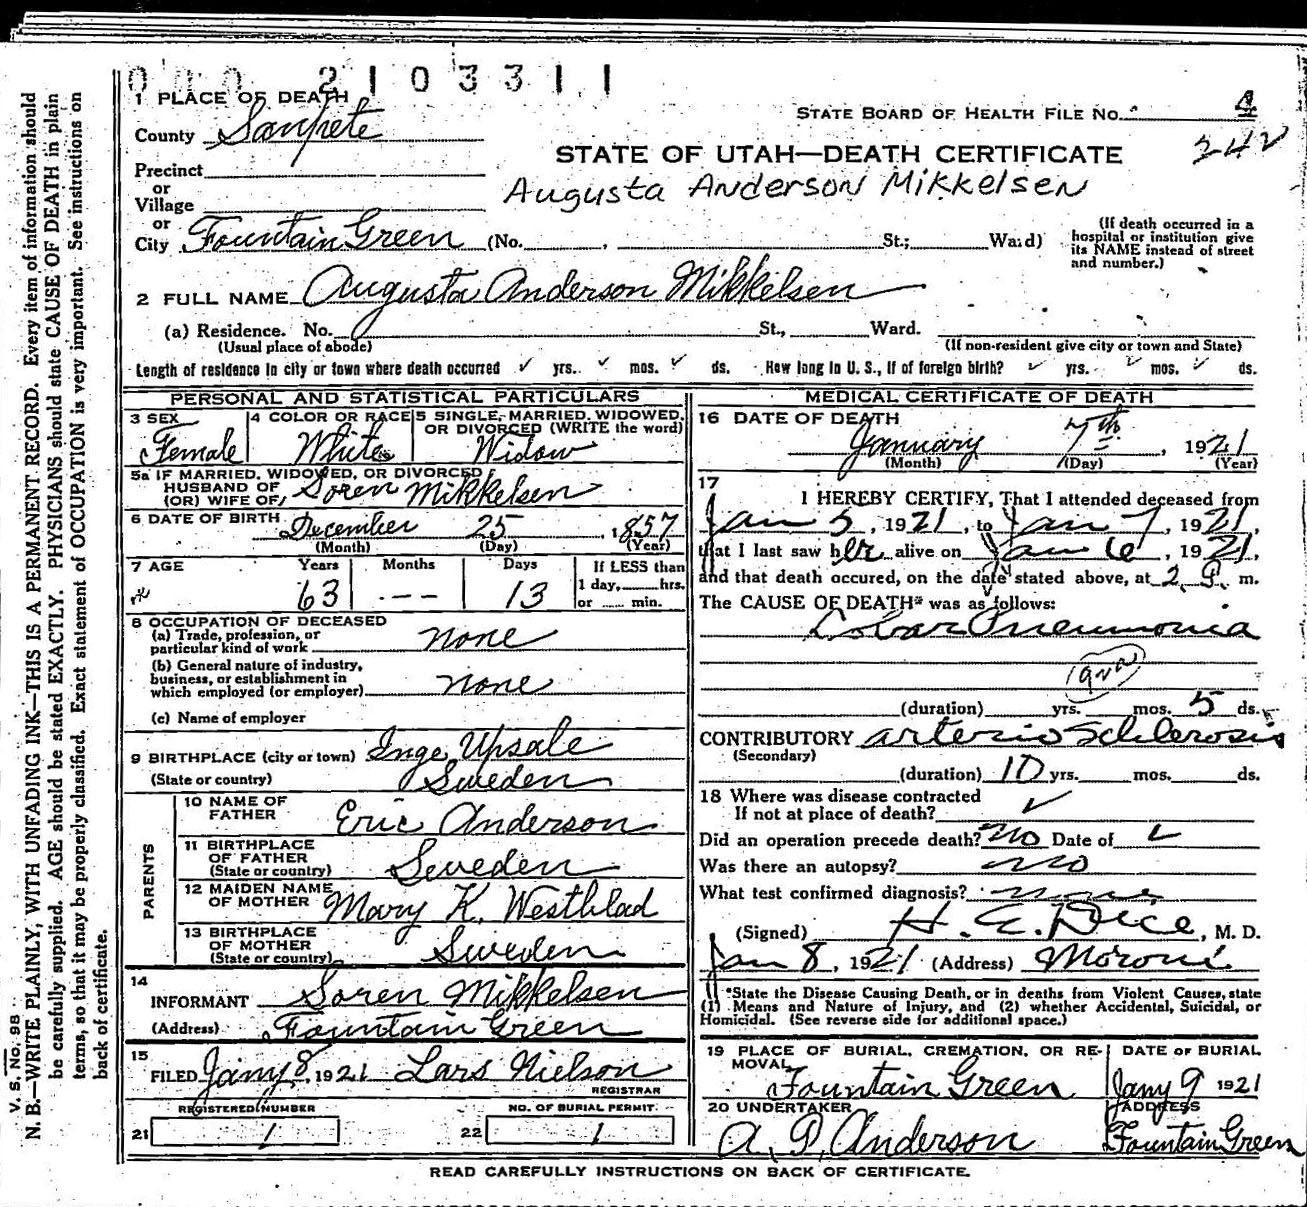 0 0 0 2 1 0 3 3 1 1
1 PLACE OF DEATH
STATE BOARD OF HEALTH FILE NO. 4
County Sanpete
242
STATE OF UTAH—DEATH CERTIFICATE
Precinct
or
Augusta Anderson Mikkelsen
Village
or
City Fountain Green (No. , St.; Ward)
(If death occurred in a
hospital or institution give
its NAME instead of street
and number.)
2 FULL NAME Augusta Anderson Mikkelsen
(a) Residence. No. St., Ward.
(Usual place of abode) (If non-resident give city or town and State)
Length of residence in city or town where death occurred ✓ yrs. ✓ mos. ✓ ds. How long in U. S., if of foreign birth? ✓ yrs. ✓ mos. ✓ ds.
PERSONAL AND STATISTICAL PARTICULARS
3 SEX
Female
4 COLOR OR RACE
White
5 SINGLE, MARRIED, WIDOWED,
OR DIVORCED (WRITE the word)
Widow
5a IF MARRIED, WIDOWED, OR DIVORCED
HUSBAND OF
(OR) WIFE OF Soren Mikkelsen
6 DATE OF BIRTH December 25, 1857
(Month) (Day) (Year)
7 AGE Years Months Days If LESS than
1 day, hrs.
63 -- 13 or min.
8 OCCUPATION OF DECEASED
(a) Trade, profession, or
particular kind of work none
(b) General nature of industry,
business, or establishment in
which employed (or employer) none
(c) Name of employer
9 BIRTHPLACE (city or town) Inge, Upsale
(State or country) Sweden
PARENTS
10 NAME OF
FATHER Eric Anderson
11 BIRTHPLACE
OF FATHER
(State or country) Sweden
12 MAIDEN NAME
OF MOTHER Mary K. Westblad
13 BIRTHPLACE
OF MOTHER
(State or country) Sweden
14
INFORMANT Soren Mikkelsen
(Address) Fountain Green
15
FILED Jany 8, 1921 Lars Nielson
REGISTRAR
REGISTERED NUMBER
21 1
NO. OF BURIAL PERMIT
22 1
MEDICAL CERTIFICATE OF DEATH
16 DATE OF DEATH
January 7th, 1921
(Month) (Day) (Year)
17
I HEREBY CERTIFY, That I attended deceased from
Jan 5, 1921, to Jan 7, 1921,
that I last saw her alive on Jan 6, 1921,
and that death occured, on the date stated above, at 2 P. m.
The CAUSE OF DEATH* was as follows:
Lobar Pneumonia
(duration) yrs. mos. 5 ds.
CONTRIBUTORY arterio Schlerosis
(Secondary)
(duration) 10 yrs. mos. ds.
18 Where was disease contracted
If not at place of death? ✓
Did an operation precede death? no Date of ✓
Was there an autopsy? no
What test confirmed diagnosis? none
(Signed) H. E. Dice, M. D.
Jan 8, 1921 (Address) Moroni
*State the Disease Causing Death, or in deaths from Violent Causes, state
(1) Means and Nature of Injury, and (2) whether Accidental, Suicidal, or
Homicidal. (See reverse side for additional space.)
19 PLACE OF BURIAL, CREMATION, OR RE-
MOVAL
Fountain Green
DATE OF BURIAL
Jany 9 1921
20 UNDERTAKER
A. P. Anderson
ADDRESS
Fountain Green
READ CAREFULLY INSTRUCTIONS ON BACK OF CERTIFICATE.
V. S. No. 98
N. B.—WRITE PLAINLY, WITH UNFADING INK—THIS IS A PERMANENT RECORD. Every item of information should
be carefully supplied. AGE should be stated EXACTLY. PHYSICIANS should state CAUSE OF DEATH in plain
terms, so that it may be properly classified. Exact statement of OCCUPATION is very important. See instructions on
back of certificate.